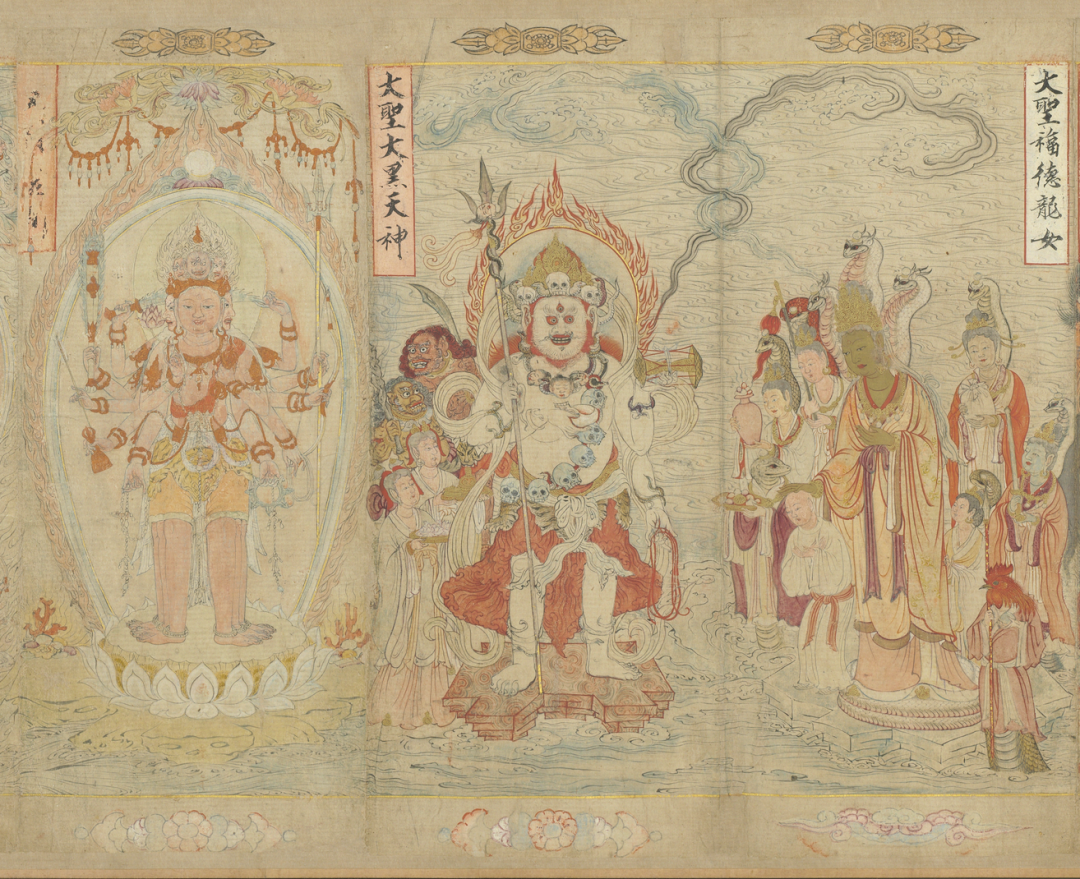 大聖福德龍女
大聖大黑天神